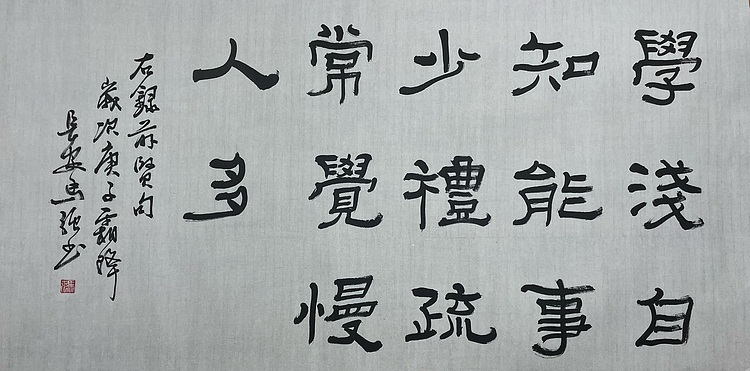 學淺自
知能事
少禮疏
常覺慢
人多
右録前賢句
歲次庚子霜降
長安 強书